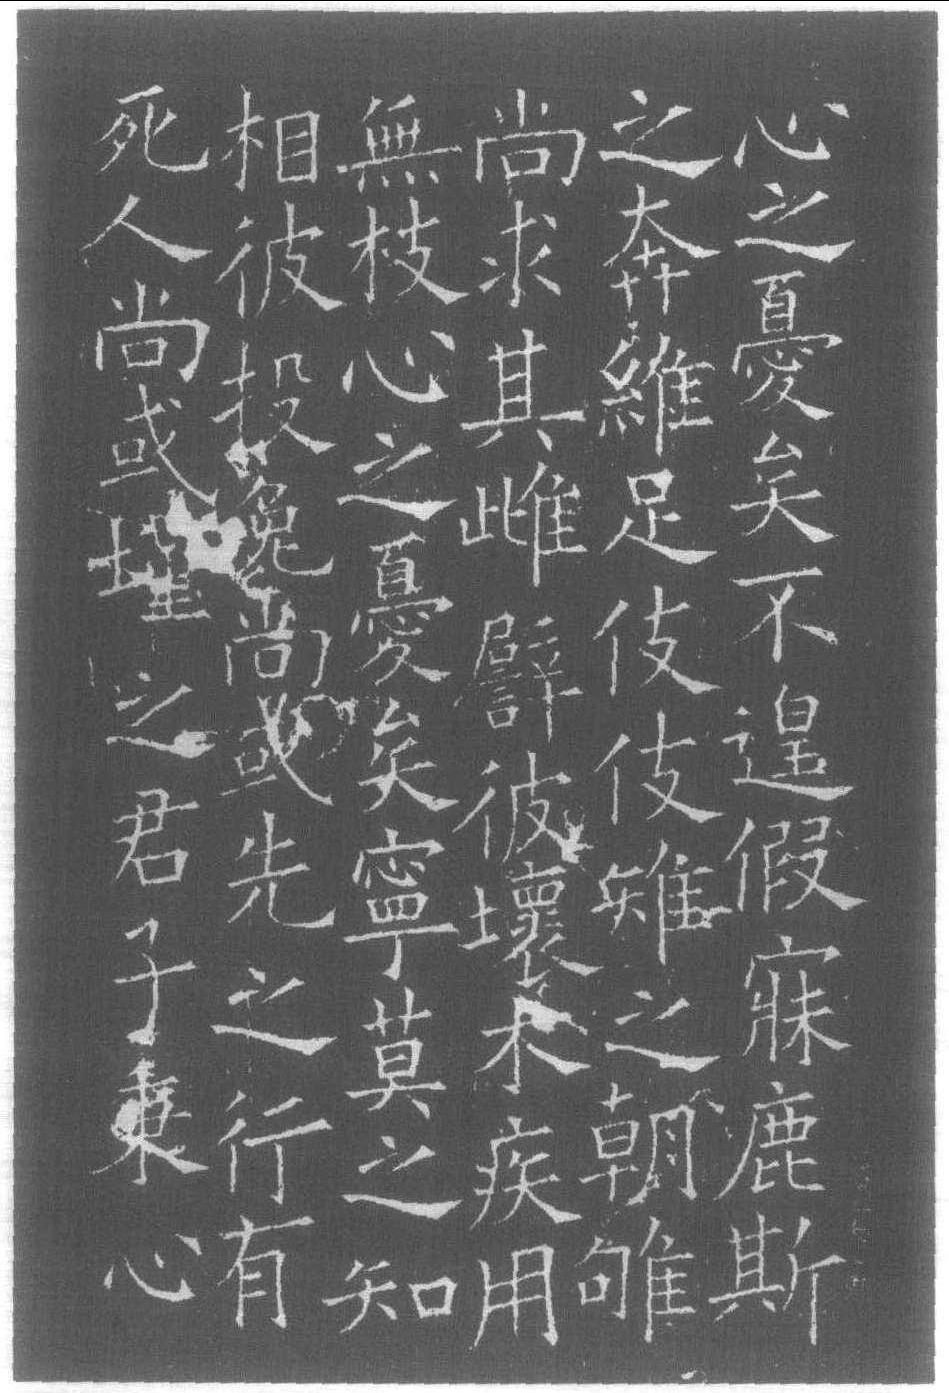 心之憂矣不遑假寐鹿斯
之奔維足伎伎雉之朝雊
尚求其雌譬彼壞木疾用
無枝心之憂矣寧莫之知
相彼投兔尚或先之行有
死人尚或墐之君子秉心